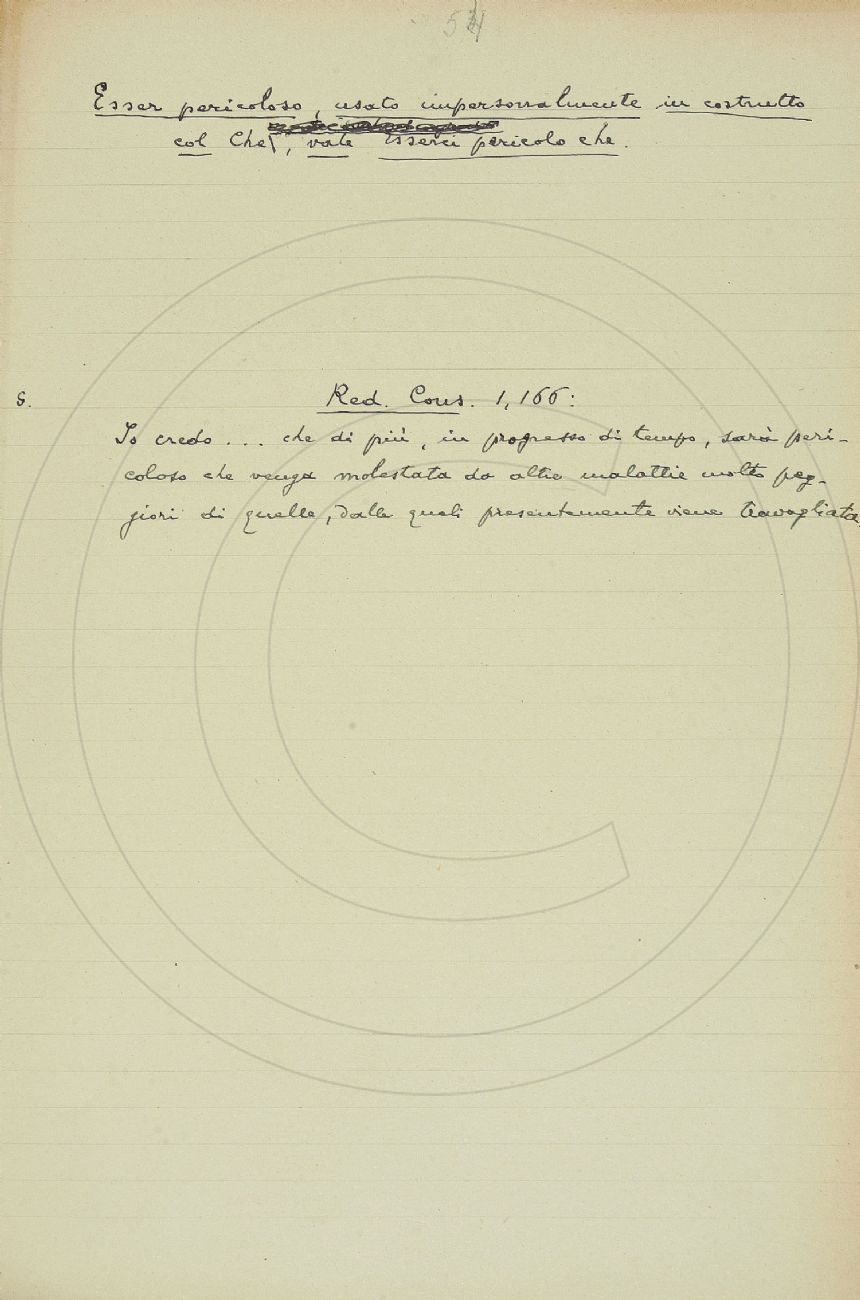 Esser pericoloso, usato impersonalmente in costrutto
col Che, vale Esserci pericolo che.
S.
Red. Cons. 1, 166:
Io credo ... che di più, in progresso di tempo, sarà peri-
coloso che venga molestata da altre malattie molto peg-
giori di quelle, dalle quali presentemente viene travagliata.